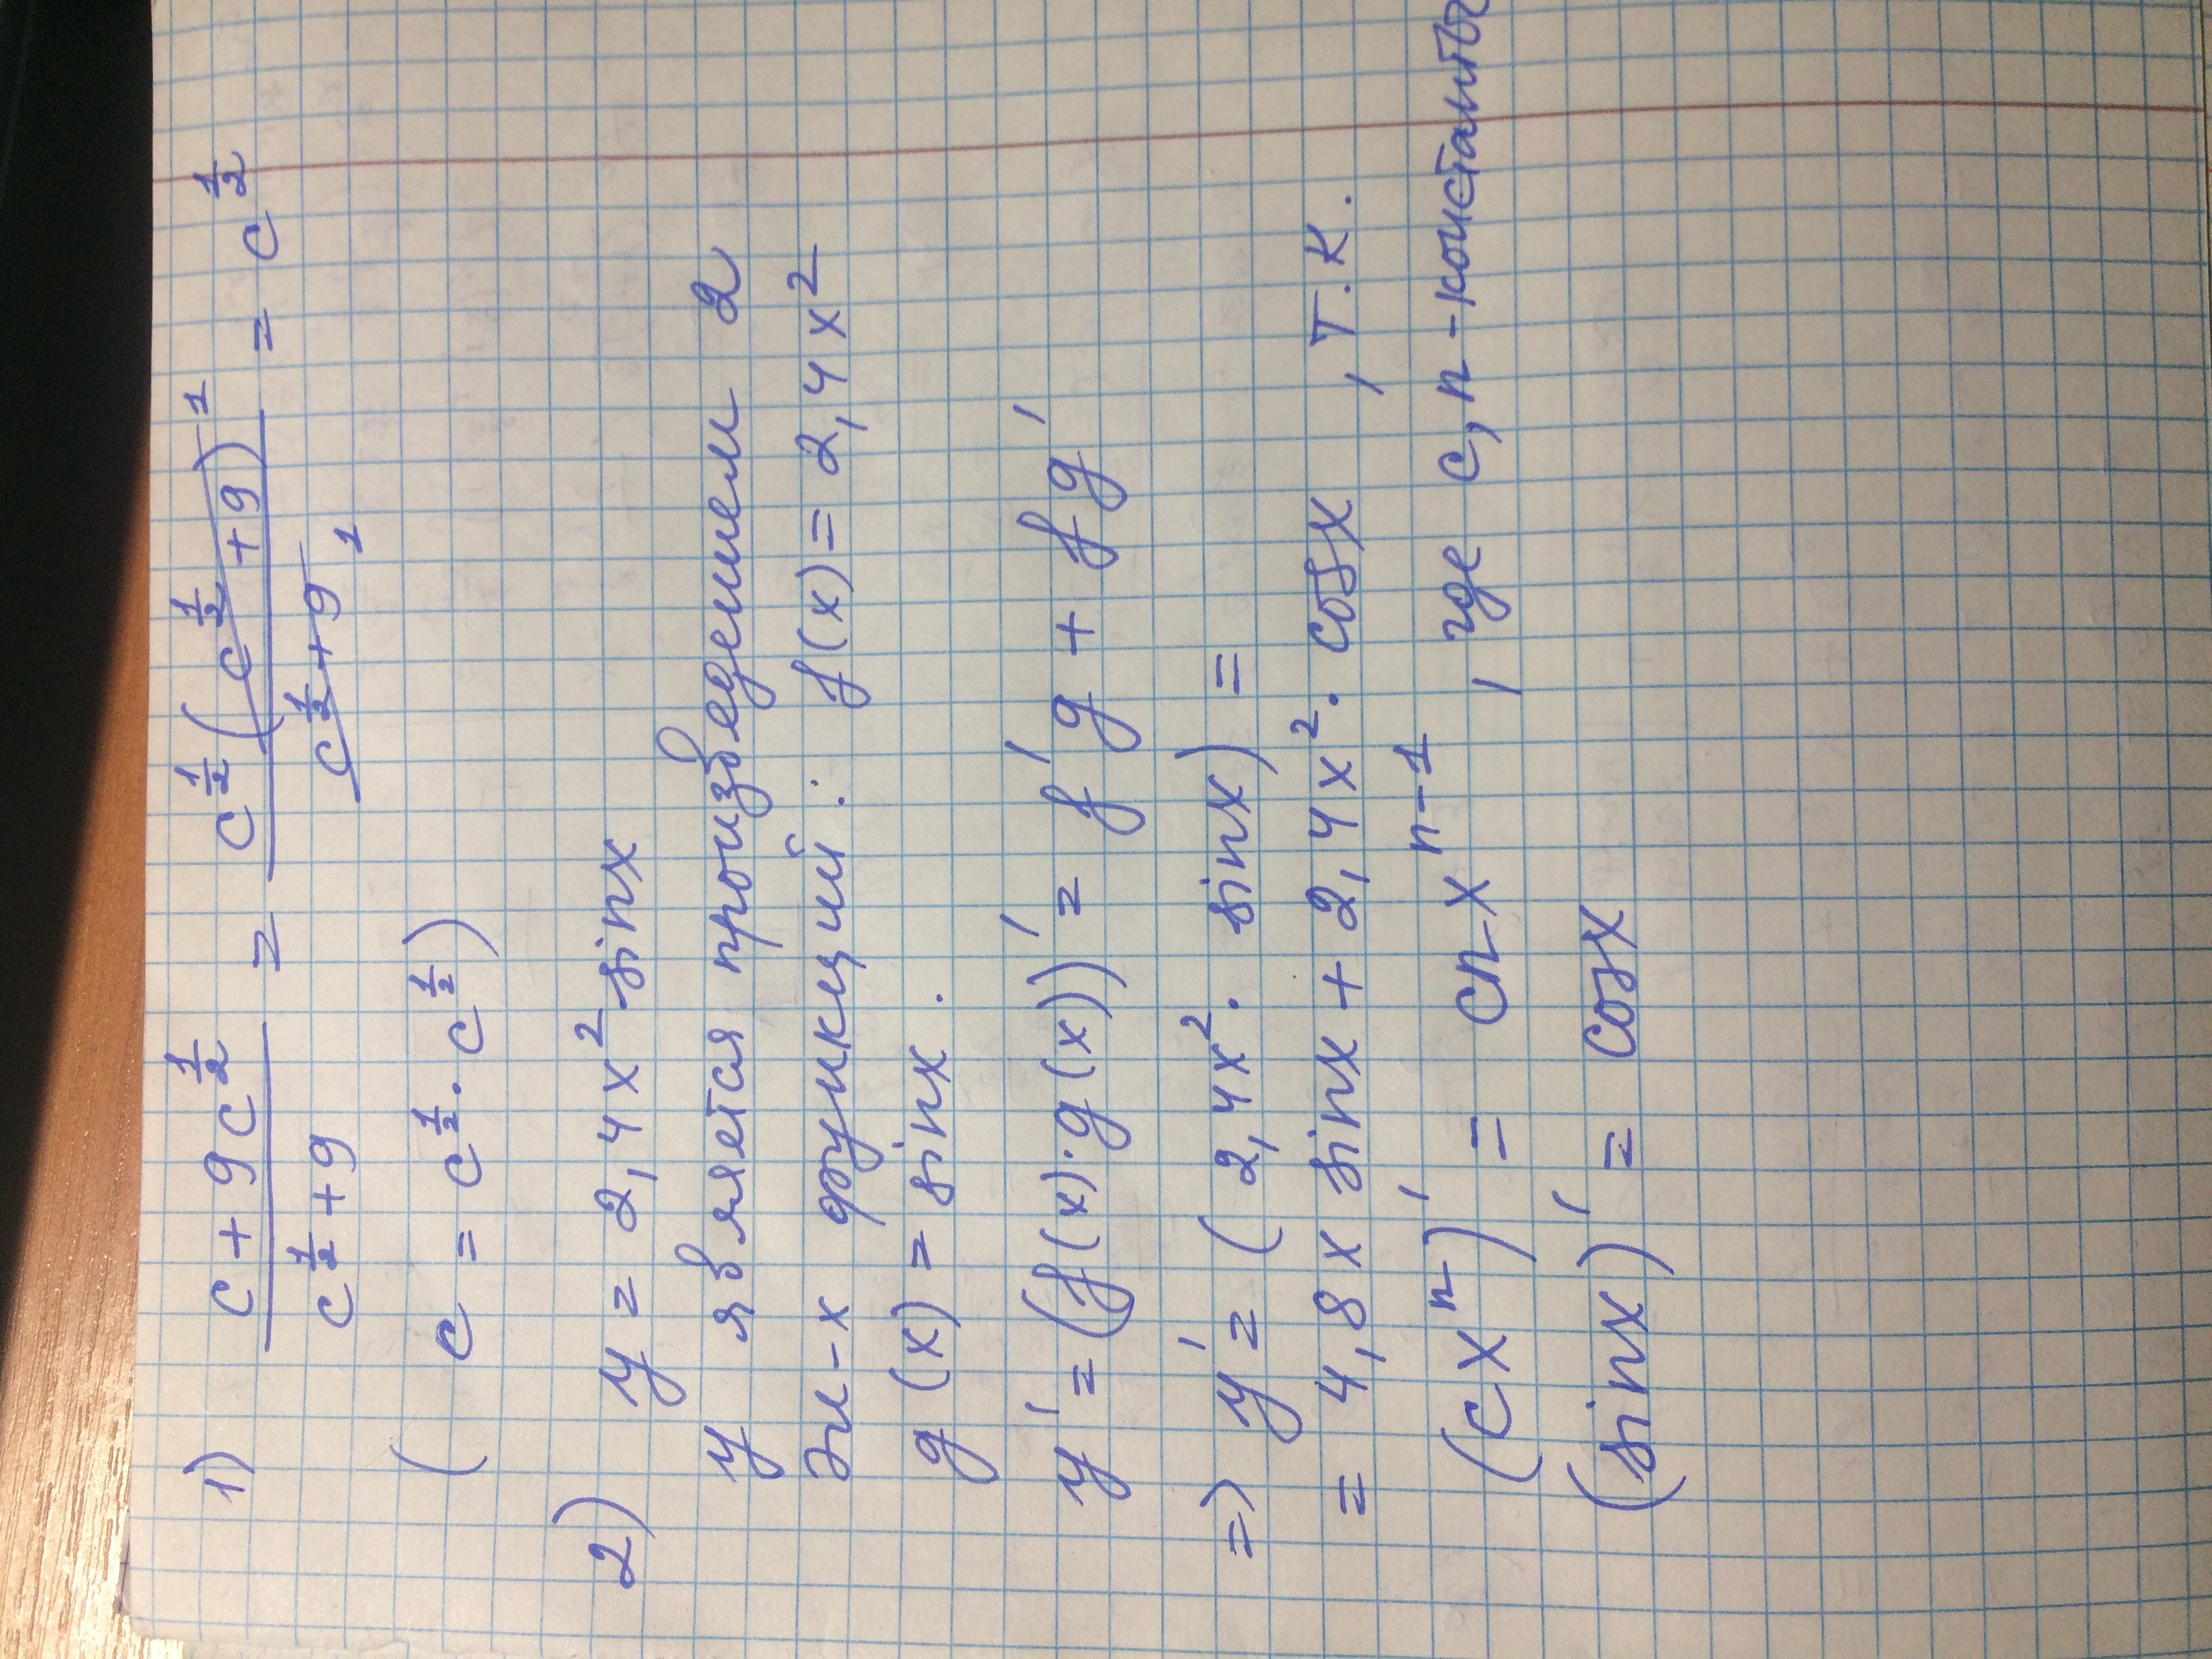 1) (c + 9c^(1/2)) / (c^(1/2) + 9) = (c^(1/2) (c^(1/2) + 9)^1) / (c^(1/2) + 9 ^1) = c^(1/2)
( c = c^(1/2) · c^(1/2) )
2) y = 2,4x² sinx
y является произведением 2
эл-х функций : f(x) = 2,4x²
g(x) = sinx .
y' = (f(x)·g(x))' = f'g + fg'
=> y' = ( 2,4x² · sinx) =
= 4,8x sinx + 2,4x² · cosx , т.к.
(cxⁿ)' = cn x^(n-1) , где c, n - константы
(sinx)' = cosx